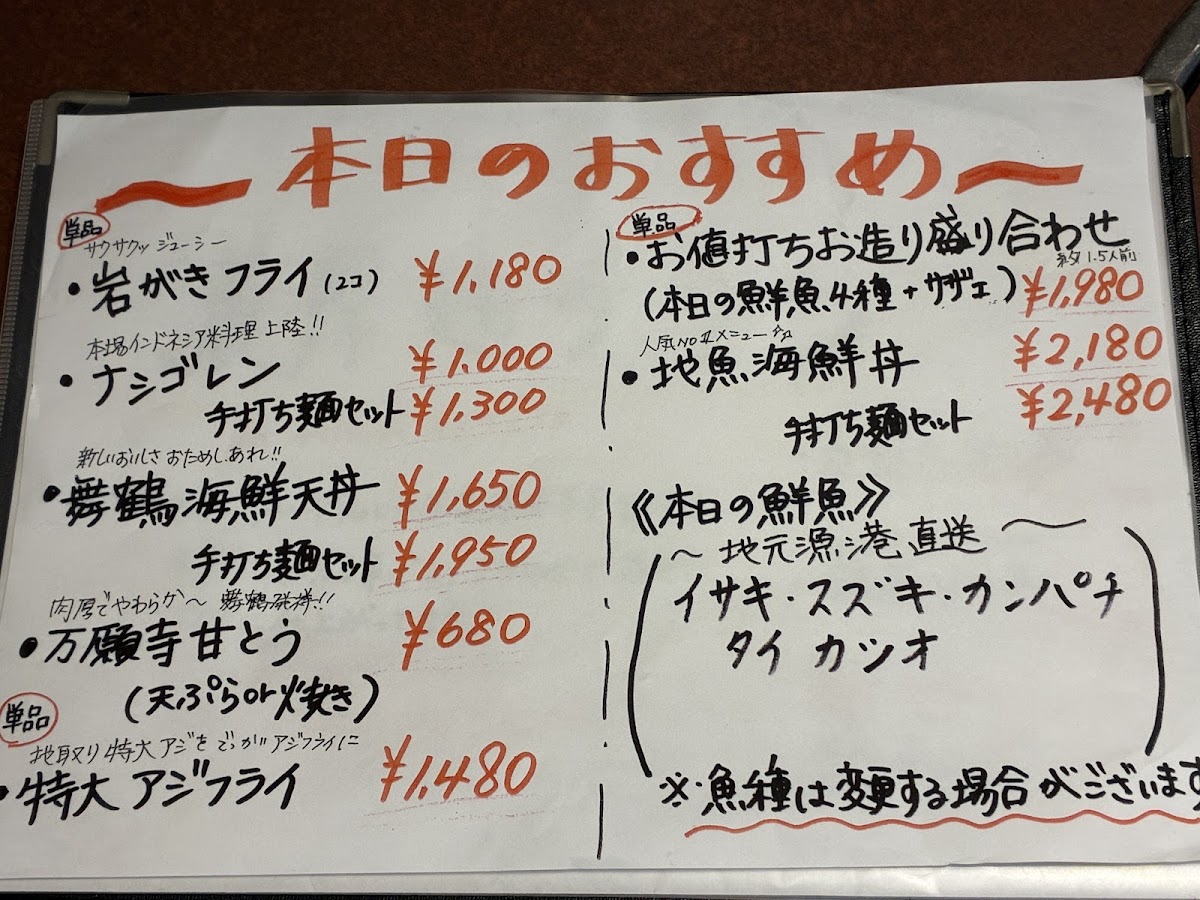 〜本日のおすすめ〜
単品
サクサクッ ジューシー
・岩がきフライ(2コ) ¥1,180
本場インドネシア料理 上陸!!
・ナシゴレン ¥1.000
手打ち麺セット ¥1,300
新しいおいしさ おためしあれ!!
・舞鶴海鮮天丼 ¥1,650
手打ち麺セット ¥1,950
肉厚でやわらか〜 舞鶴発祥!!
・万願寺甘とう ¥680
(天ぷらor焼き)
単品
地取り特大アジを でっかいアジフライに
・特大アジフライ ¥1,480
単品
・お値打ちお造り盛り合わせ
約1.5人前
(本日の鮮魚4種+サザエ) ¥1,980
人気NO.1メニュー
・地魚海鮮丼 ¥2,180
手打ち麺セット ¥2,480
《本日の鮮魚》
〜地元漁港直送〜
イサキ・スズキ・カンパチ
タイ カツオ
※魚種は変更する場合がございます